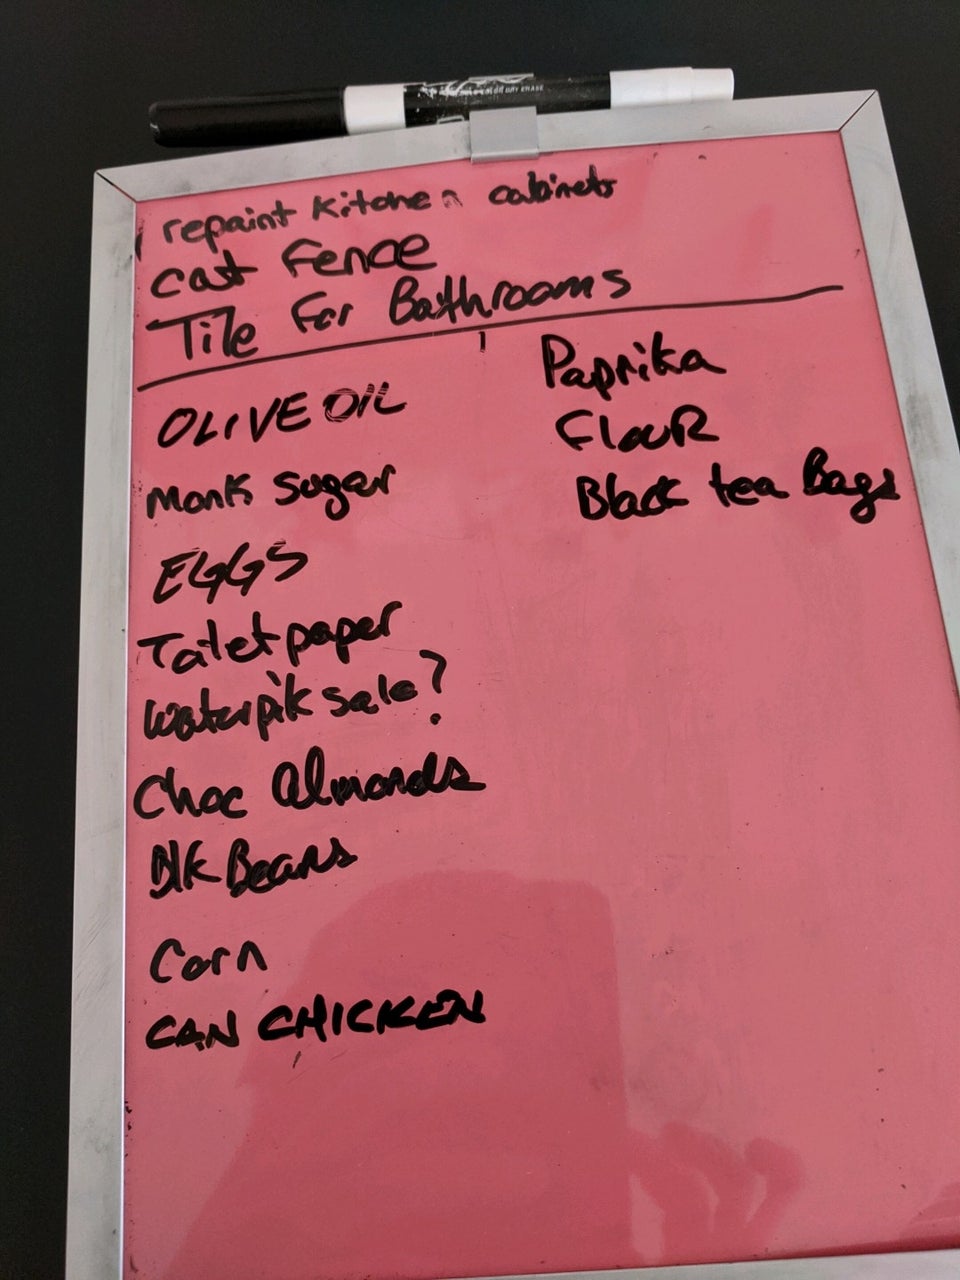 repaint kitchen cabinets
Cast Fence
Tile For Bathrooms
OLIVE OIL
Monk Sugar
EGGS
Toilet paper
Waterpik sale?
Choc Almonds
Blk Beans
Corn
CAN CHICKEN
Paprika
Flour
Black tea Bags